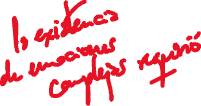 la existencia
de emociones
complejas requirió